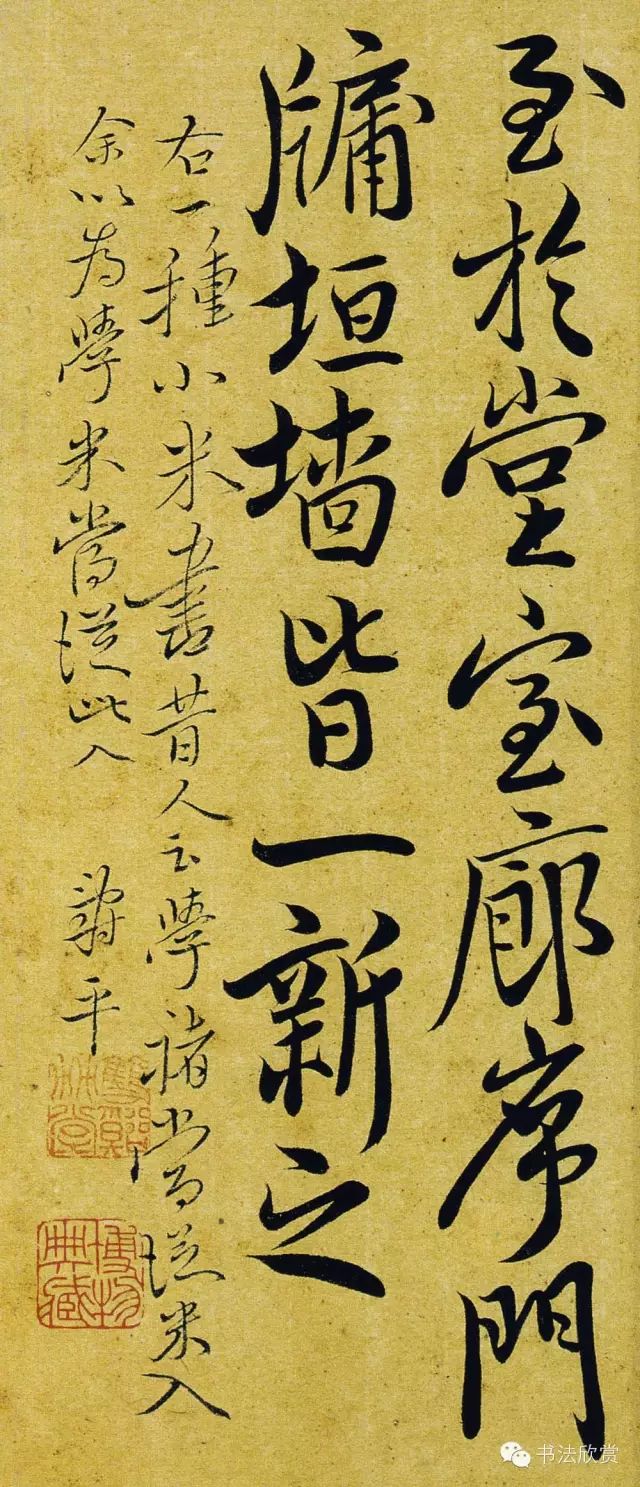 至於堂室廊序門
牖垣墙皆一新之
右一種小米書昔人云學褚當從米入
余以為學米當從此入
平
博物典藏
书法欣赏